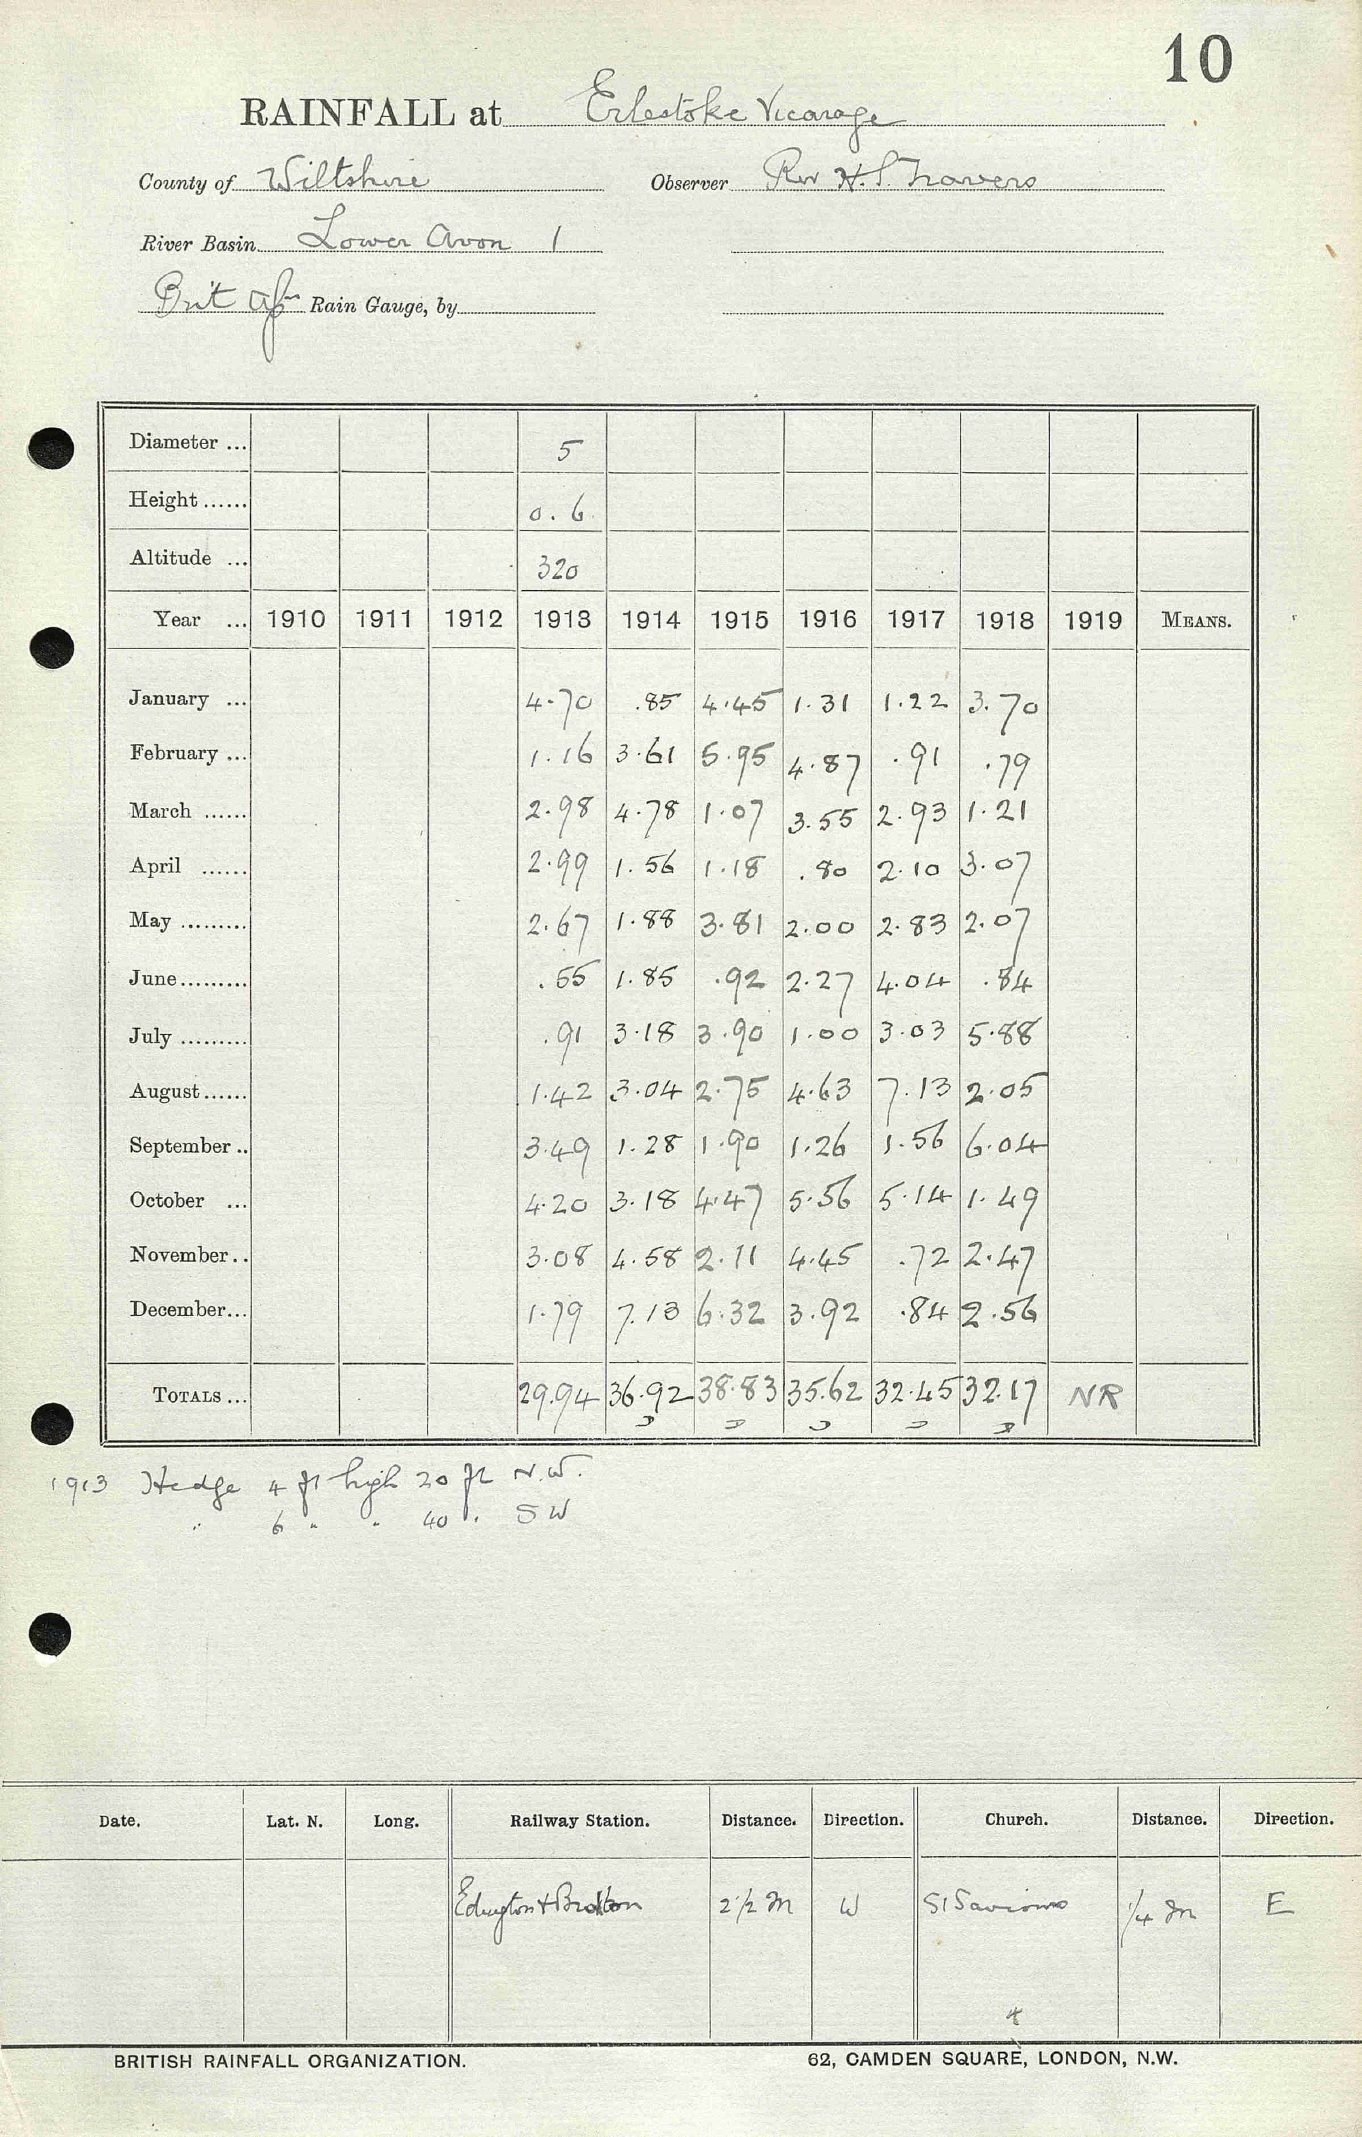 10
RAINFALL at Erlestoke Vicarage
County of Wiltshire Observer Rev H. S. Travers
River Basin Lower Avon 1
Brit Rain Gauge, by
Diameter ... 5
Height ...... 0.6
Altitude ... 320
Year ... 1910 1911 1912 1913 1914 1915 1916 1917 1918 1919 MEANS.
January ... 4.70 .85 4.45 1.31 1.22 3.70
February ... 1.16 3.61 5.95 4.87 .91 .79
March ...... 2.98 4.78 1.07 3.55 2.93 1.21
April ...... 2.99 1.56 1.18 .80 2.10 3.07
May ......... 2.67 1.88 3.81 2.00 2.83 2.07
June......... .55 1.85 .92 2.27 4.04 .84
July ......... .91 3.18 3.90 1.00 3.03 5.88
August...... 1.42 3.04 2.75 4.63 7.13 2.05
September .. 3.49 1.28 1.90 1.26 1.56 6.04
October ... 4.20 3.18 4.47 5.56 5.14 1.49
November.. 3.08 4.58 2.11 4.45 .72 2.47
December... 1.79 7.13 6.32 3.92 .84 2.56
TOTALS ... 29.94 36.92 38.83 35.62 32.45 32.17 NR
1913 Hedge 4 ft high 20 ft N.W.
" 6 " " 40 " SW
Date. Lat. N. Long. Railway Station. Distance. Direction. Church. Distance. Direction.
Edington & Bratton 2 1/2 M W St Saviours 1/4 m E
BRITISH RAINFALL ORGANIZATION. 62, CAMDEN SQUARE, LONDON, N.W.